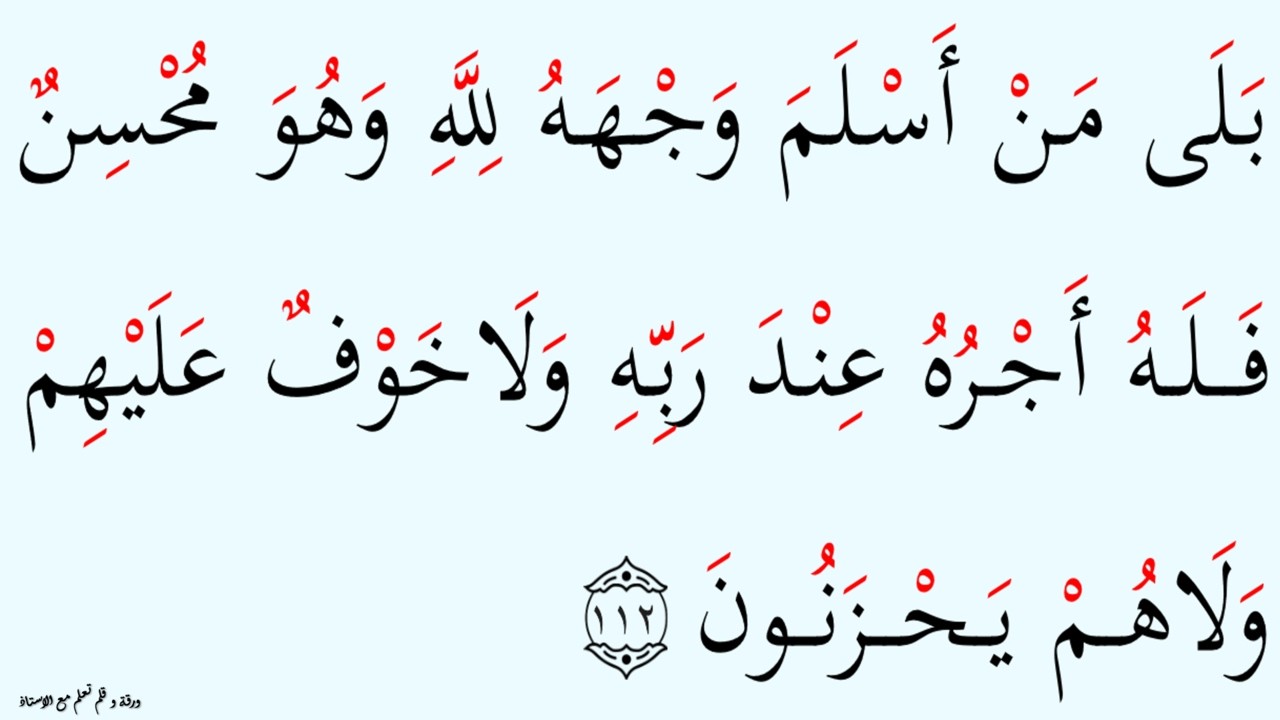 بَلَى مَنْ أَسْلَمَ وَجْهَهُ لِلَّهِ وَهُوَ مُحْسِنٌ
فَلَهُ أَجْرُهُ عِنْدَ رَبِّهِ وَلَا خَوْفٌ عَلَيْهِمْ
وَلَا هُمْ يَحْزَنُونَ ١١٢
ورقة و قلم تعلم مع الاستاذ